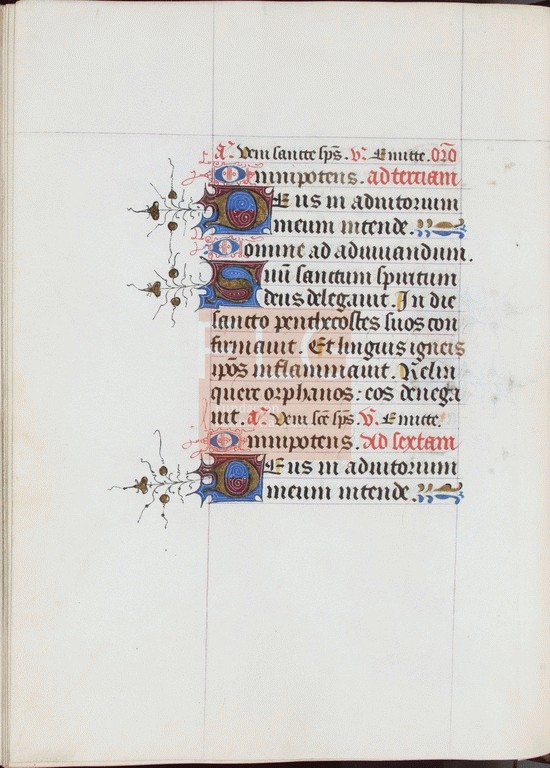 a. Veni sancte sps. v. Emitte. oro
Omnipotens. ad terciam
Deus in adiutorium
meum intende.
Domine ad adiuuandum.
Suum sanctum spiritum
deus delegauit. In die
sancto penthecostes suos con
firmauit. Et linguis igneis
ipos inflammauit. Relin
quere orphanos: eos denega
uit. a. Veni sce sps. v. Emitte.
Omnipotens. Ad sextam
Deus in adiutorium
meum intende.